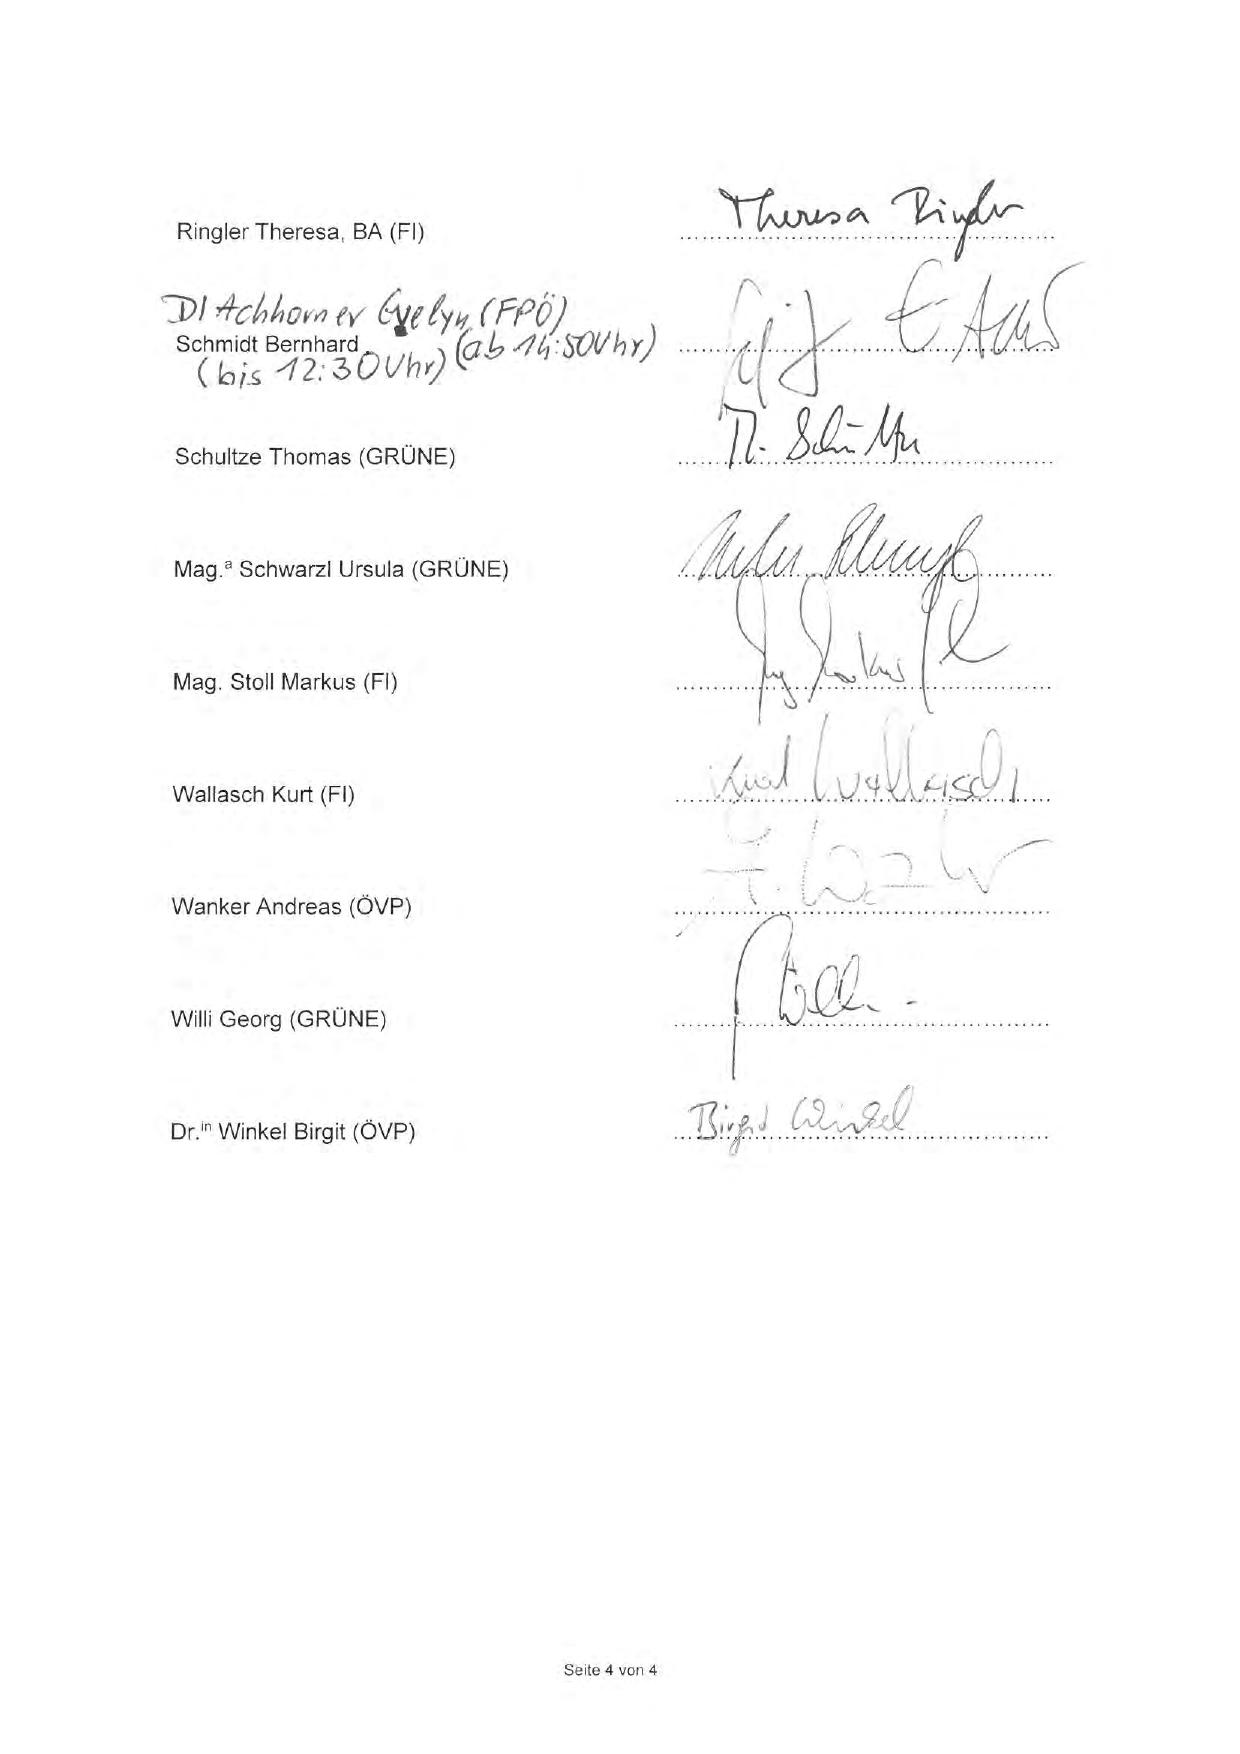 Ringler Theresa, BA (FI) Theresa Ringler
DI Achhorner Evelyn (FPÖ)
Schmidt Bernhard (ab 14:50 Uhr)
(bis 12:30 Uhr)
Schultze Thomas (GRÜNE)
Mag.ª Schwarzl Ursula (GRÜNE)
Mag. Stoll Markus (FI)
Wallasch Kurt (FI) Kurt Wallasch
Wanker Andreas (ÖVP)
Willi Georg (GRÜNE)
Dr.ⁱⁿ Winkel Birgit (ÖVP) Birgit Winkel
Seite 4 von 4